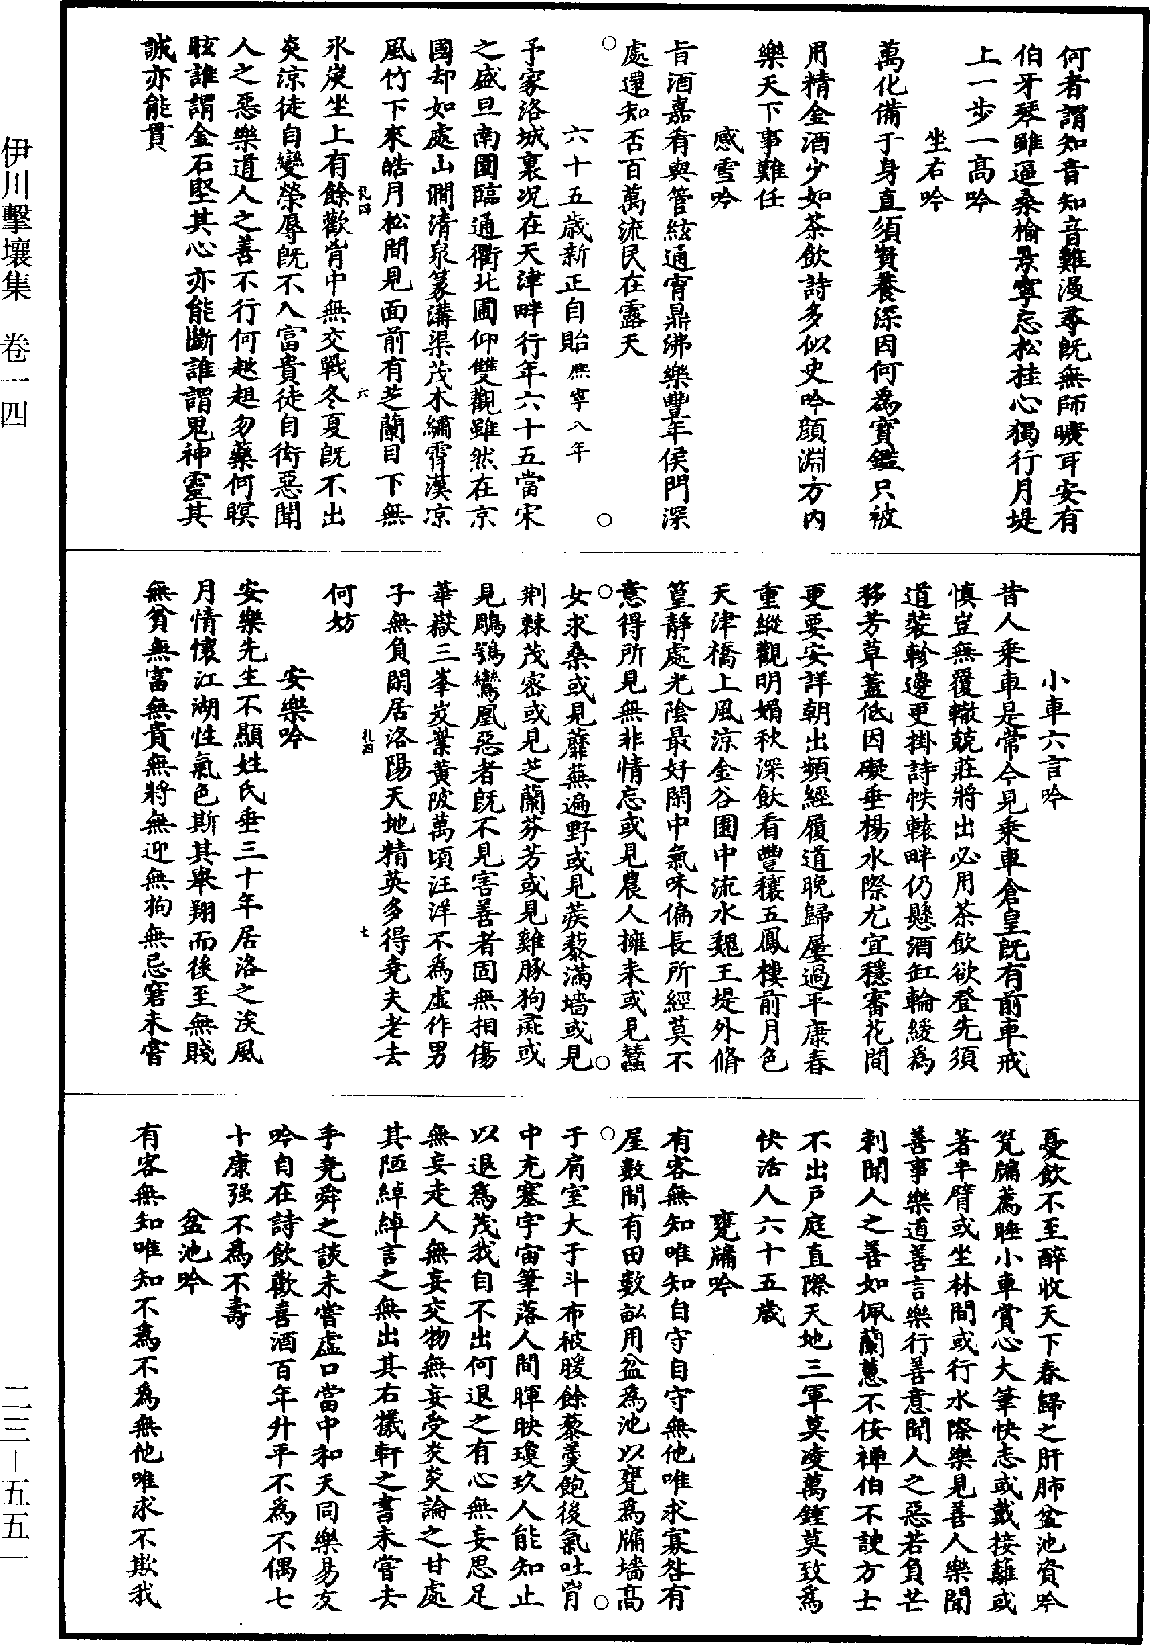 伊川擊壤集　卷一四
二三—五五一
何者謂知音知音難漫尋既無師曠耳安有
伯牙琴雖逼桑榆景寧忘松桂心獨行月堤
上一步一高吟
坐右吟
萬化備于身直須資養深因何為寶鑑只被
用精金酒少如茶飲詩多似史吟顏淵方內
樂天下事難任
感雪吟
旨酒嘉肴與管絃通宵鼎沸樂豐年侯門深
處還知否百萬流民在露天
六十五歲新正自貽熙寧八年
予家洛城裏況在天津畔行年六十五當宋
之盛旦南園臨通衢北圃仰雙觀雖然在京
國却如處山澗清泉篆溝渠茂木繡霄漢凉
風竹下來皓月松間見面前有芝蘭目下無
氷炭坐上有餘歡胷中無交戰冬夏既不出
炎涼徒自變榮辱既不入富貴徒自衒惡聞
人之惡樂道人之善不行何趑趄勿藥何瞑
眩誰謂金石堅其心亦能斷誰謂鬼神靈其
誠亦能貫
小車六言吟
昔人乘車是常今見乘車倉皇既有前車戒
慎豈無覆轍兢莊將出必用茶飲欲登先須
道裝軫邊更掛詩帙轅畔仍懸酒缸輪緩為
移芳草蓋低因礙垂楊水際尤宜穩審花間
更要安詳朝出頻經履道晚歸屢過平康春
重縱觀明媚秋深飲看豐穰五鳳樓前月色
天津橋上風涼金谷園中流水魏王堤外脩
篁靜處光陰最好閑中氣味偏長所經莫不
意得所見無非情忘或見農人擁耒或見蠶
女求桑或見蘼蕪遍野或見蒺藜滿墻或見
荆棘茂密或見芝蘭芬芳或見雞豚狗彘或
見鵰鶚鸞凰惡者既不見害善者固無相傷
華嶽三峯岌嶪黃陂萬頃汪洋不為虛作男
子無負閑居洛陽天地精英多得堯夫老去
何妨
安樂吟
安樂先生不顯姓氏垂三十年居洛之涘風
月情懷江湖性氣色斯其舉翔而後至無賤
無貧無富無貴無將無迎無拘無忌窘未嘗
憂飲不至醉收天下春歸之肝肺盆池資吟
甕牖薦睡小車賞心大筆快志或戴接籬或
著半臂或坐林間或行水際樂見善人樂聞
善事樂道善言樂行善意聞人之惡若負芒
刺聞人之善如佩蘭蕙不佞禪伯不諛方士
不出戶庭直際天地三軍莫凌萬鍾莫致為
快活人六十五歲
甕牖吟
有客無知唯知自守自守無他唯求寡咎有
屋數間有田數畝用盆為池以甕為牖墻高
于肩室大于斗布被暖餘藜羹飽後氣吐胷
中充塞宇宙筆落人間暉映瓊玖人能知止
以退為茂我自不出何退之有心無妄思足
無妄走人無妄交物無妄受炎炎論之甘處
其陋綽綽言之無出其右羲軒之書未嘗去
手堯舜之談未嘗虛口當中和天同樂易友
吟自在詩飲歡喜酒百年升平不為不偶七
十康强不為不壽
盆池吟
有客無知唯知不為不為無他唯求不欺我